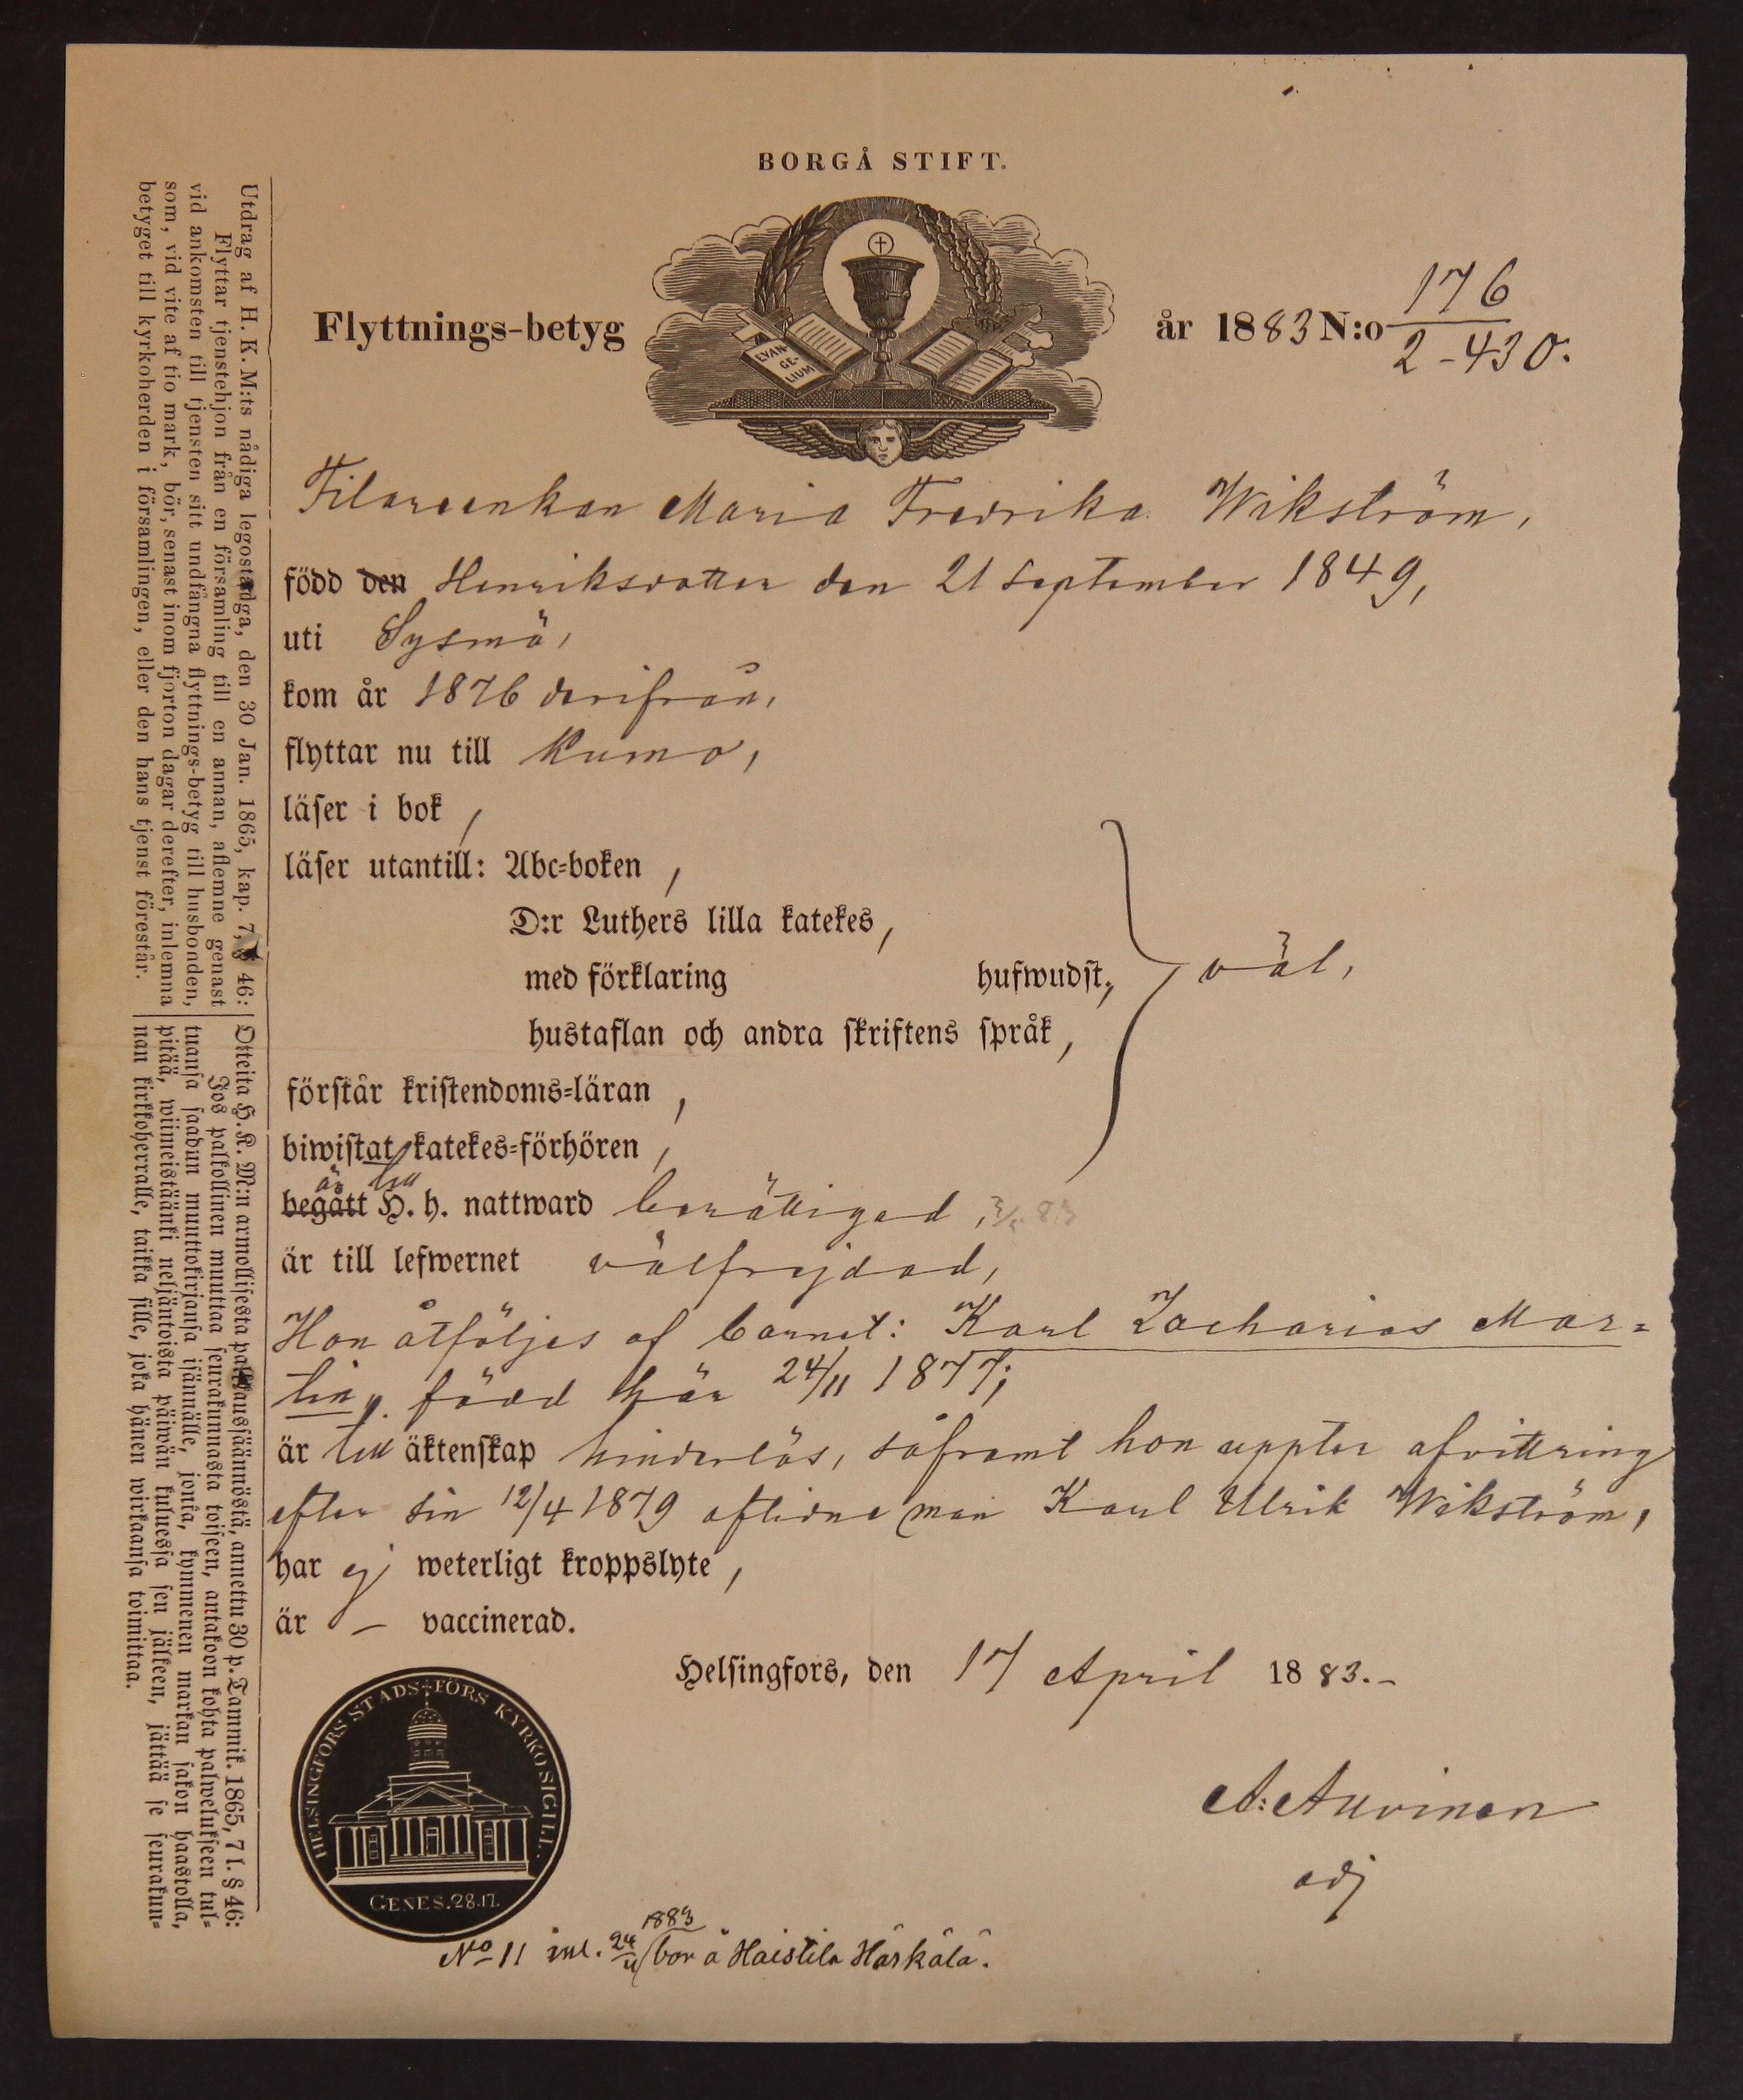 BORGÅ STIFT.
Flyttnings-betyg
EVAN-
GE-
LIUM
år 1883 N:o 176
2-430.
Filareenkan Maria Fredrika Wikström,
född den Henriksdotter den 21 September 1849,
uti Sysmä,
kom år 1876 derifrån,
flyttar nu till Kumo,
läser i bok,
läser utantill: Abc-boken,
D:r Luthers lilla katekes,
med förklaring hufwudst., väl,
hustaflan och andra skriftens språk,
förstår kristendoms-läran,
biwistat katekes-förhören,
är till
begått H. h. nattward berättigad,
är till lefwernet välfrejdad,
Hon åtföljes af barnet: Karl Zacharias Mar-
tin, född här 24/11 1877;
är till äktenskap hinderlös, såframt hon uppter afvittring
efter sin 12/4 1879 aflidne man Karl Ulrik Wikström,
har ej weterligt kroppslyte,
är – vaccinerad.
Helsingfors, den 17 April 1883.-
A: Auvinen
adj
HELSINGFORS STADS FÖRS KYRKO SIGILL.
GENES. 28. 17.
1883
No 11 inl. 24/11 bor å Haistila Härkälä.
Utdrag af H. K. M:ts nådiga legostadga, den 30 Jan. 1865, kap. 7, § 46:
Flyttar tjenstehjon från en församling till en annan, aflemne genast
vid ankomsten till tjensten sitt undfångna flyttnings-betyg till husbonden,
som, vid vite af tio mark, bör, senast inom fjorton dagar derefter, inlemna
betyget till kyrkoherden i församlingen, eller den hans tjenst förestår.
Otteita H. K. M:n armollisesta palkkaussäännöstä, annettu 30 p. Tammik. 1865, 7 l. § 46:
Jos palkollinen muuttaa seurakunnasta toiseen, antakoon kohta palwelukseen tul-
tuansa saadun muuttokirjansa isännälle, jonka, kymmenen markan sakon haastolla,
pitää, wiimeistäänki neljäntoista päiwän kuluessa sen jälkeen, jättää se seurakun-
nan kirkkoherralle, taikka sille, joka hänen wirkaansa toimittaa.